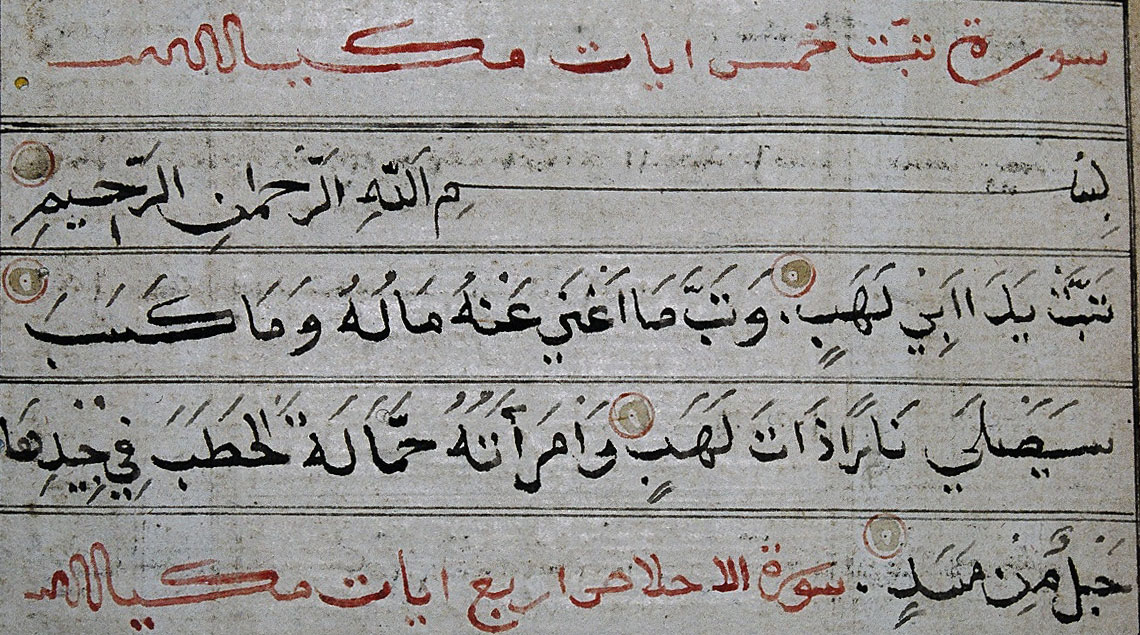 سورة تبت خمس ايات مكيـ
بِسْمِ اللّٰهِ الرَّحْمانِ الرَّحِيمِ
تَبَّتْ يَدَا اَبِي لَهَبٍ وَتَبَّ مَا اَغْنَي عَنْهُ مَالُهُ وَمَا كَسَبَ
سَيَصْلَي نَارًا ذَاتَ لَهَبٍ وَامْرَأَتُهُ حَمَّالَةَ الْحَطَبِ فِي جِيدِهَا
حَبْلٌ مِّنْ مَسَدٍ سورة الاخلاص اربع ايات مكيـ